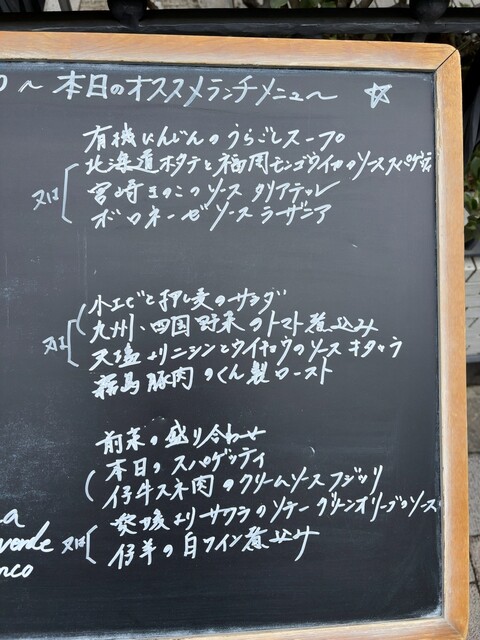 〜本日のオススメランチメニュー〜 ☆
有機にんじんのうらごしスープ
北海道ホタテと福岡モンゴウイカのソース スパゲッティ
又は
宮崎きのこのソース タリアテッレ
ボロネーゼソース ラザニア
小エビと押し麦のサラダ
九州、四国野菜のトマト煮込み
又は
天塩よりニシンとウイキョウのソース キタッラ
霧島豚肉のくん製ロースト
前菜の盛り合わせ
本日のスパゲッティ
仔牛スネ肉のクリームソース フジッリ
よりサワラのソテー グリーンオリーブのソース
又は
仔羊の白ワイン煮込み